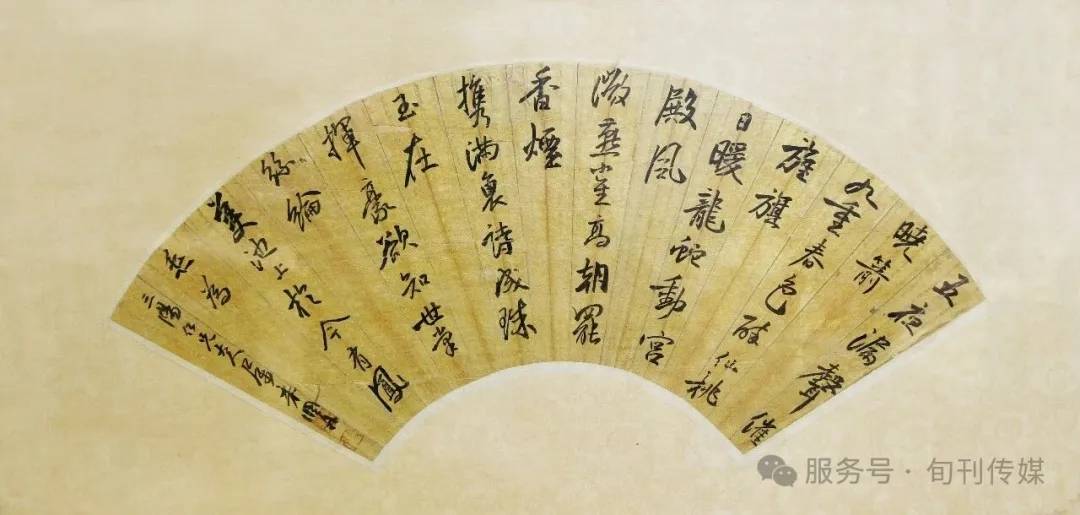 五夜漏聲催
曉箭
九重春色醉仙桃
旌旗
日暖龍蛇動宮
殿風
微燕雀高朝罷
香煙
攜滿褎詩成珠
玉在
揮豪欲知世掌
絲綸
美池上於今有鳳
毛為
服务号·旬刊传媒